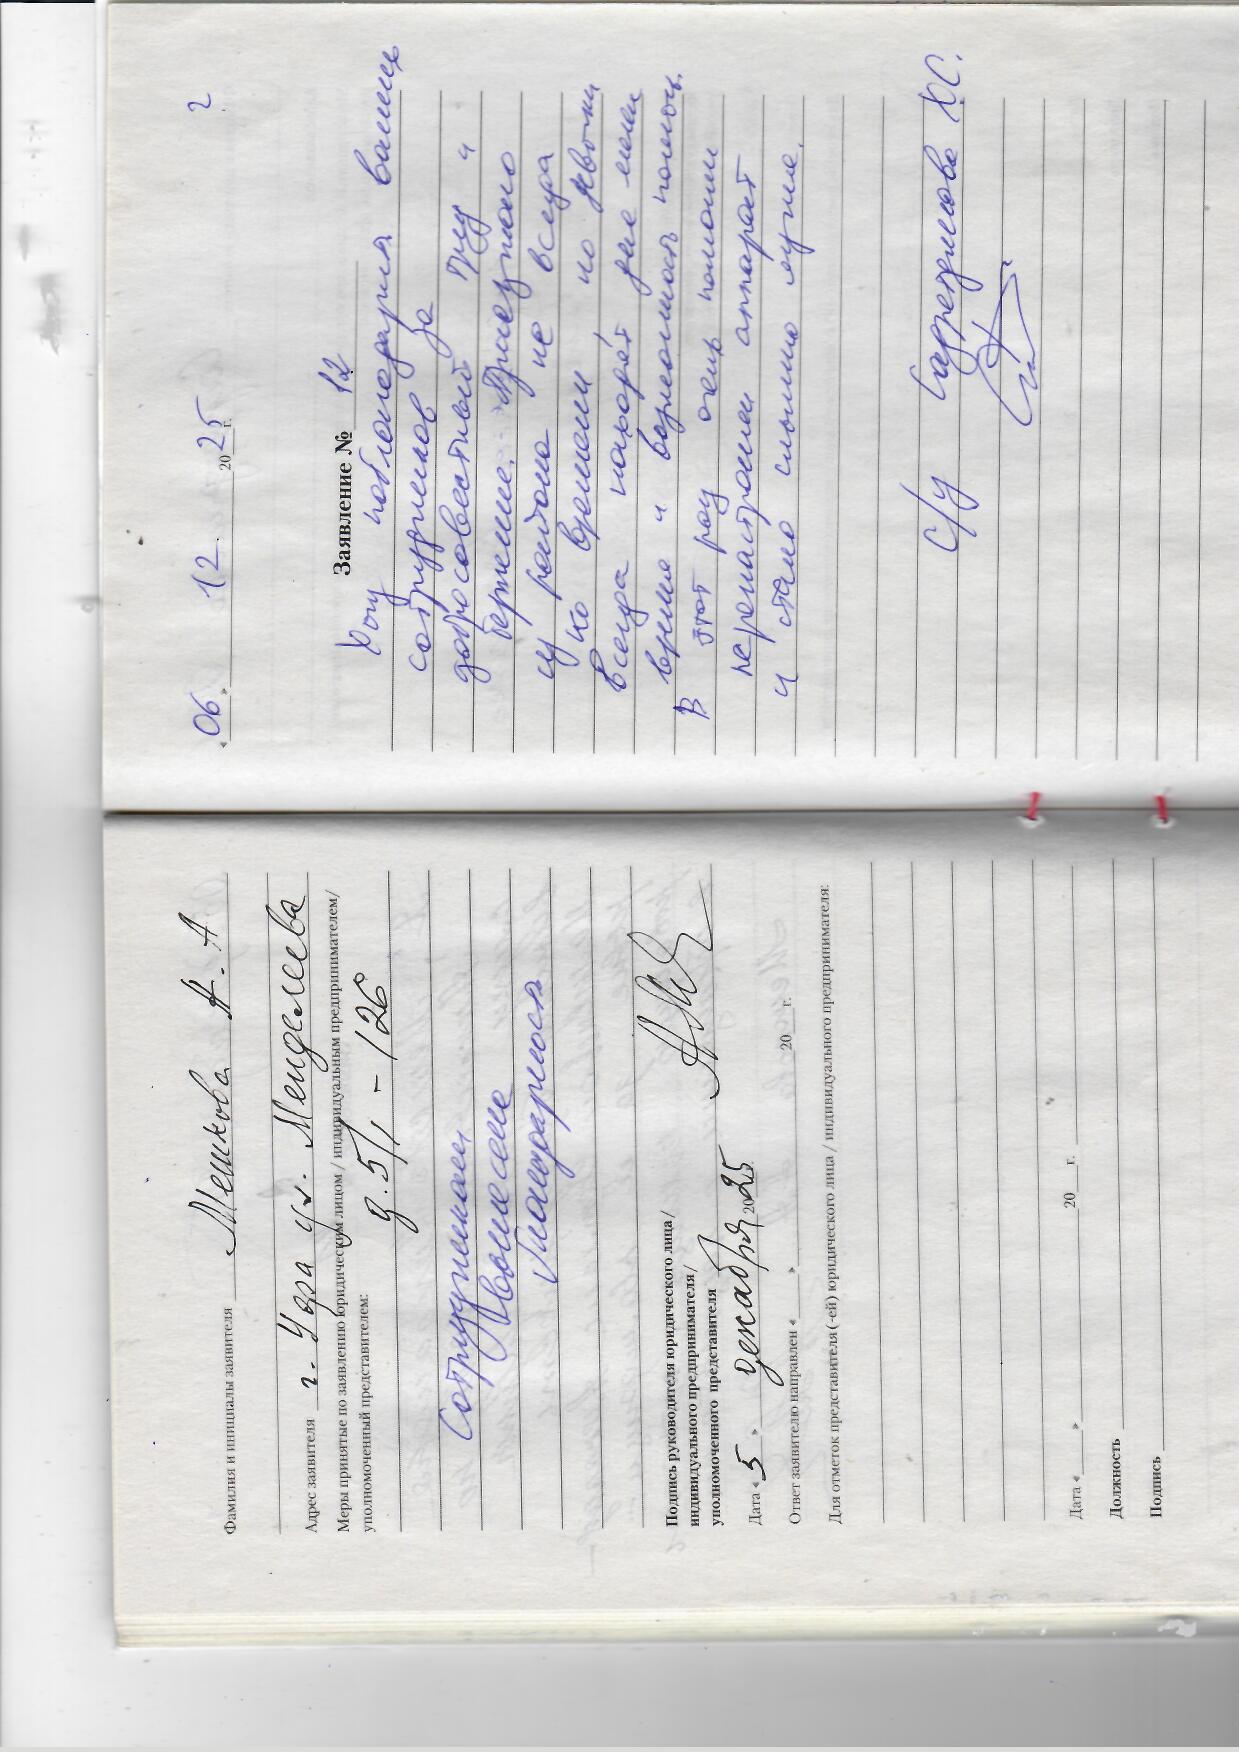 Фамилия и инициалы заявителя Мешкова А. А
Адрес заявителя г. Уфа ул. Менделеева
Меры принятые по заявлению юридическим лицом / индивидуальным предпринимателем/
уполномоченный представителем:
д. 5/1 - 126
Сотрудникам
благодарность
Подпись руководителя юридического лица /
индивидуального предпринимателя /
уполномоченного представителя
Дата « 5 » декабря 2025
Ответ заявителю направлен « » 20 г.
Для отметок представителя (-ей) юридического лица / индивидуального предпринимателя:
Дата « » 20 г.
Должность
Подпись
« 06 » 12. 2025 г.
2
Заявление № 12
Хочу поблагодарить ваших
сотрудников за
добросовестный труд и
терпение. Приезжаю
из района не всегда
ко времени но девочки
всегда находят для меня
время и возможность помочь.
В этот раз очень помогли
перенастроили аппарат
и стало слышно лучше.
с/у